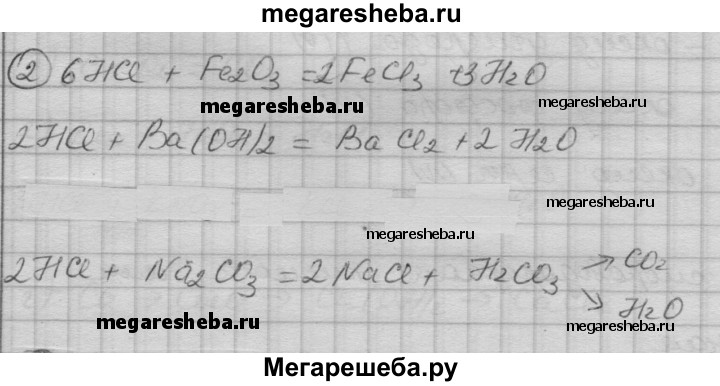 megaresheba.ru
② 6HCl + Fe2O3 = 2FeCl3 + 3H2O
megaresheba.ru megaresheba.ru
2HCl + Ba(OH)2 = BaCl2 + 2H2O
megaresheba.ru
2HCl + Na2CO3 = 2NaCl + H2CO3 → CO2
→ H2O
megaresheba.ru megaresheba.ru
Мегарешеба.ру